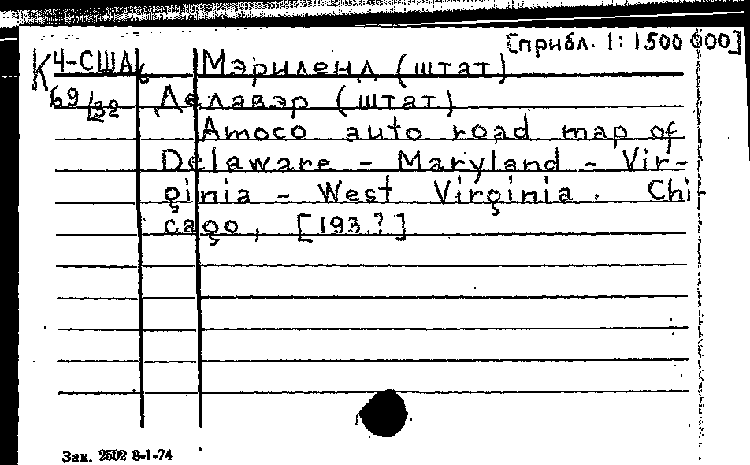 [прибл. 1: 1500 000]
К 4-США Мэриленд (штат)
69/32 Делавэр (штат)
Amoco auto road map of
Delaware - Maryland - Vir-
ginia - West Virginia. Chi-
cago, [193.?]
Зак. 2502 8-1-74